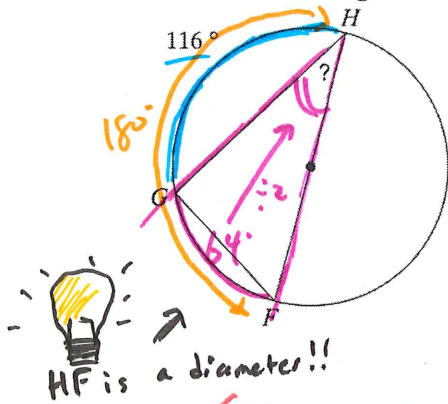 H
116°
?
180°
G
÷2
64°
F
HF is a diameter!!